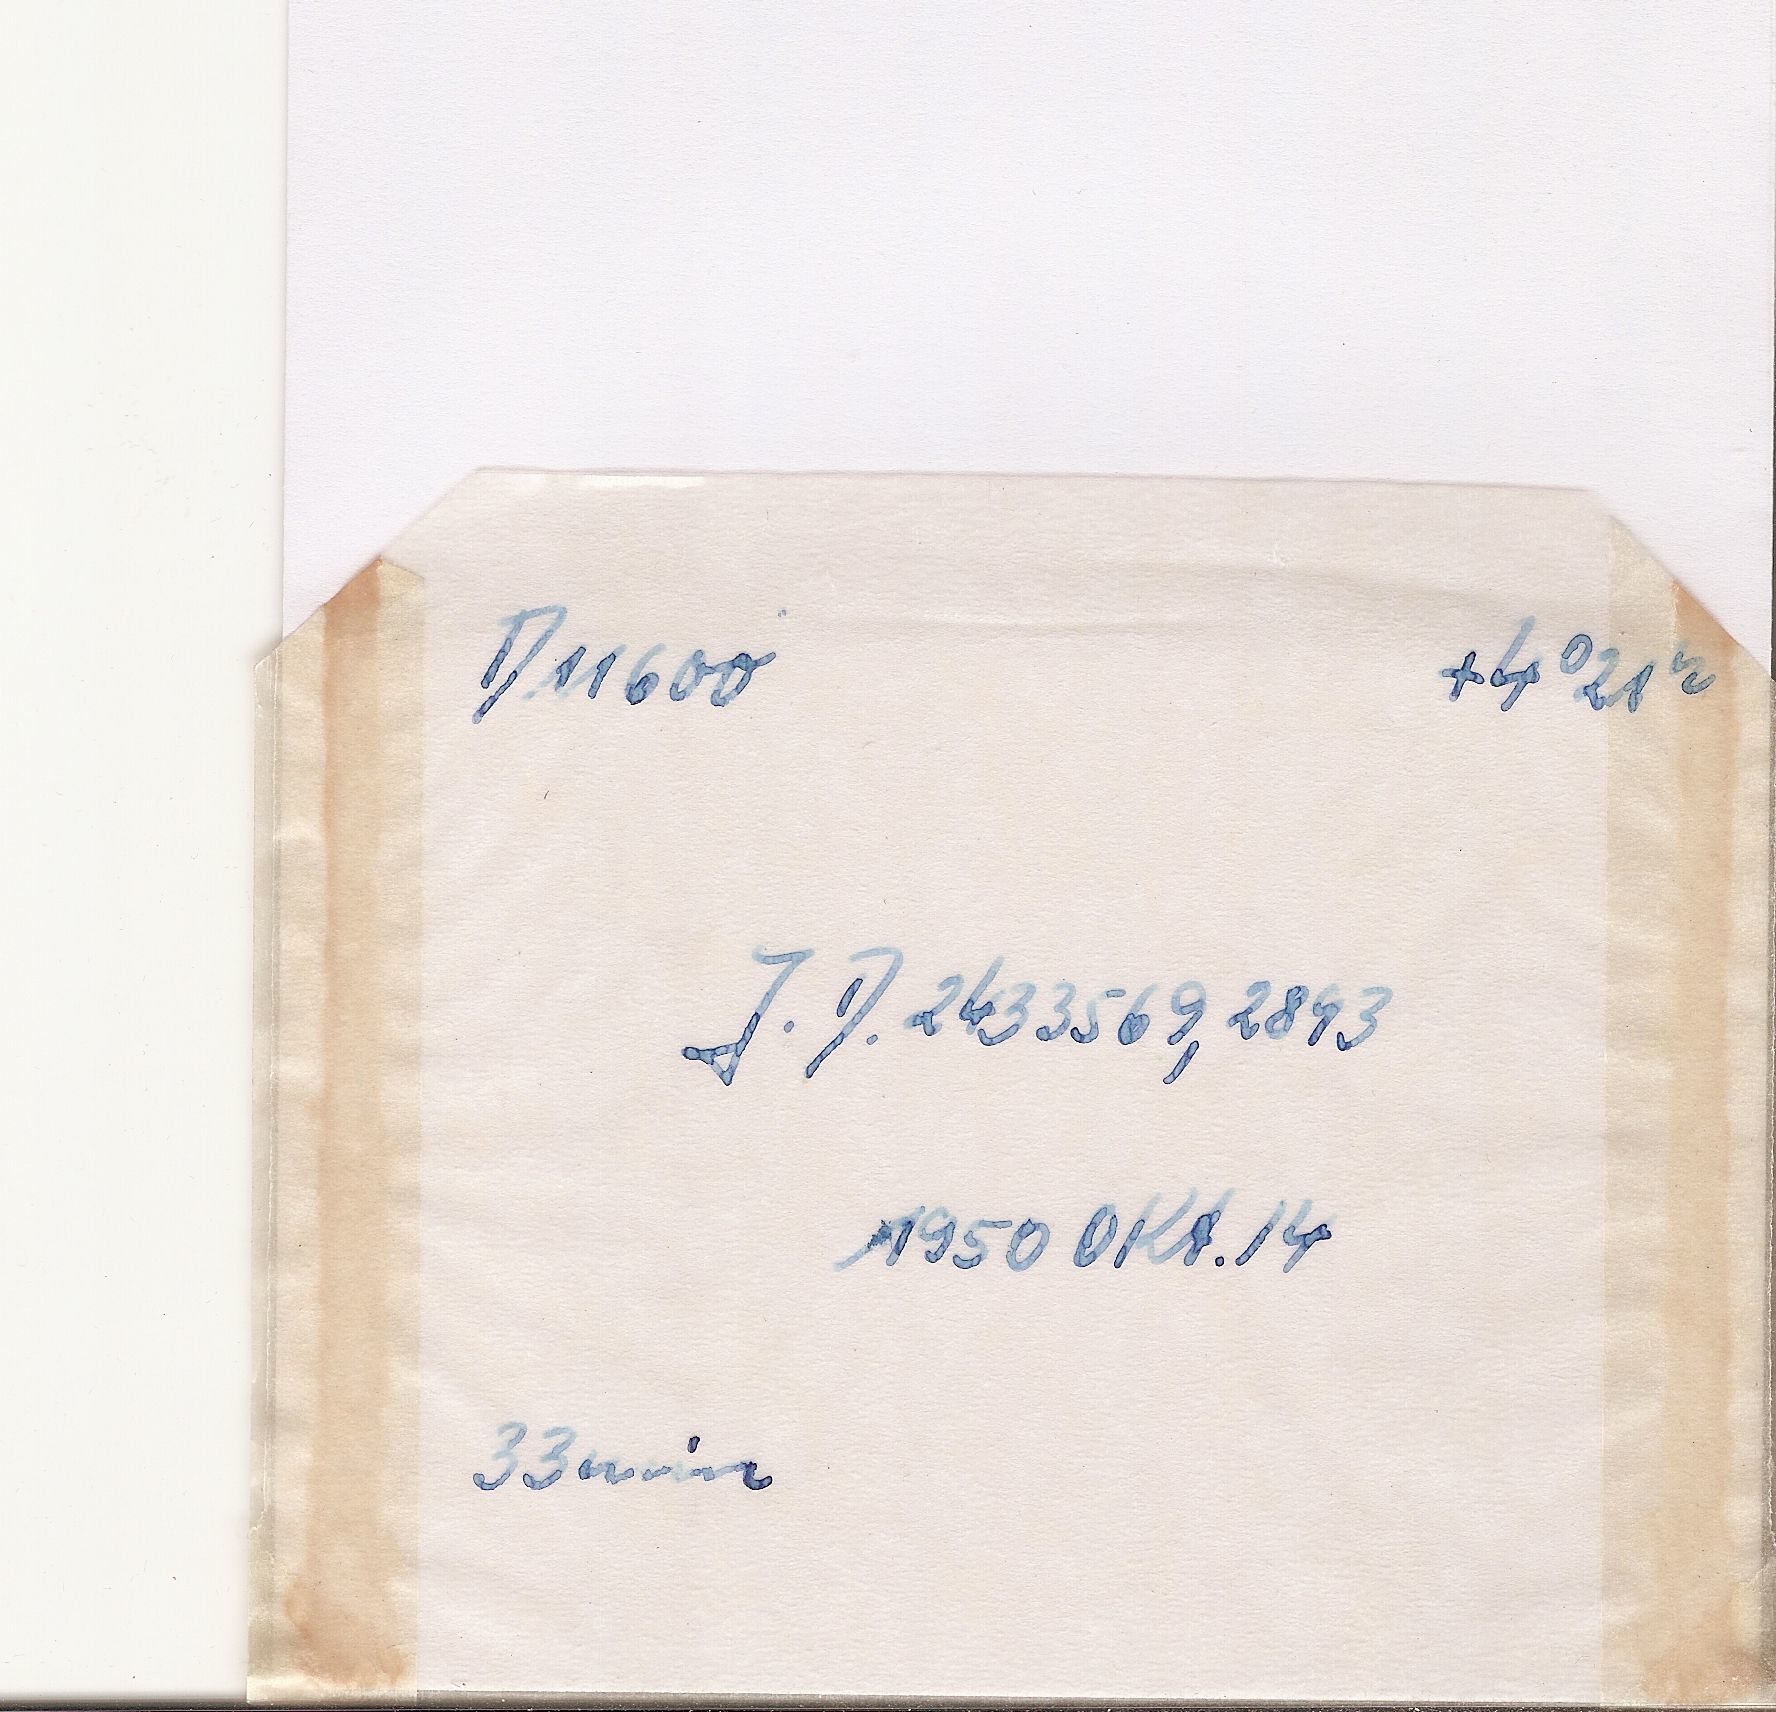 D11600 +4°21h
J.D. 2433569,2893
1950 Okt. 14
33min